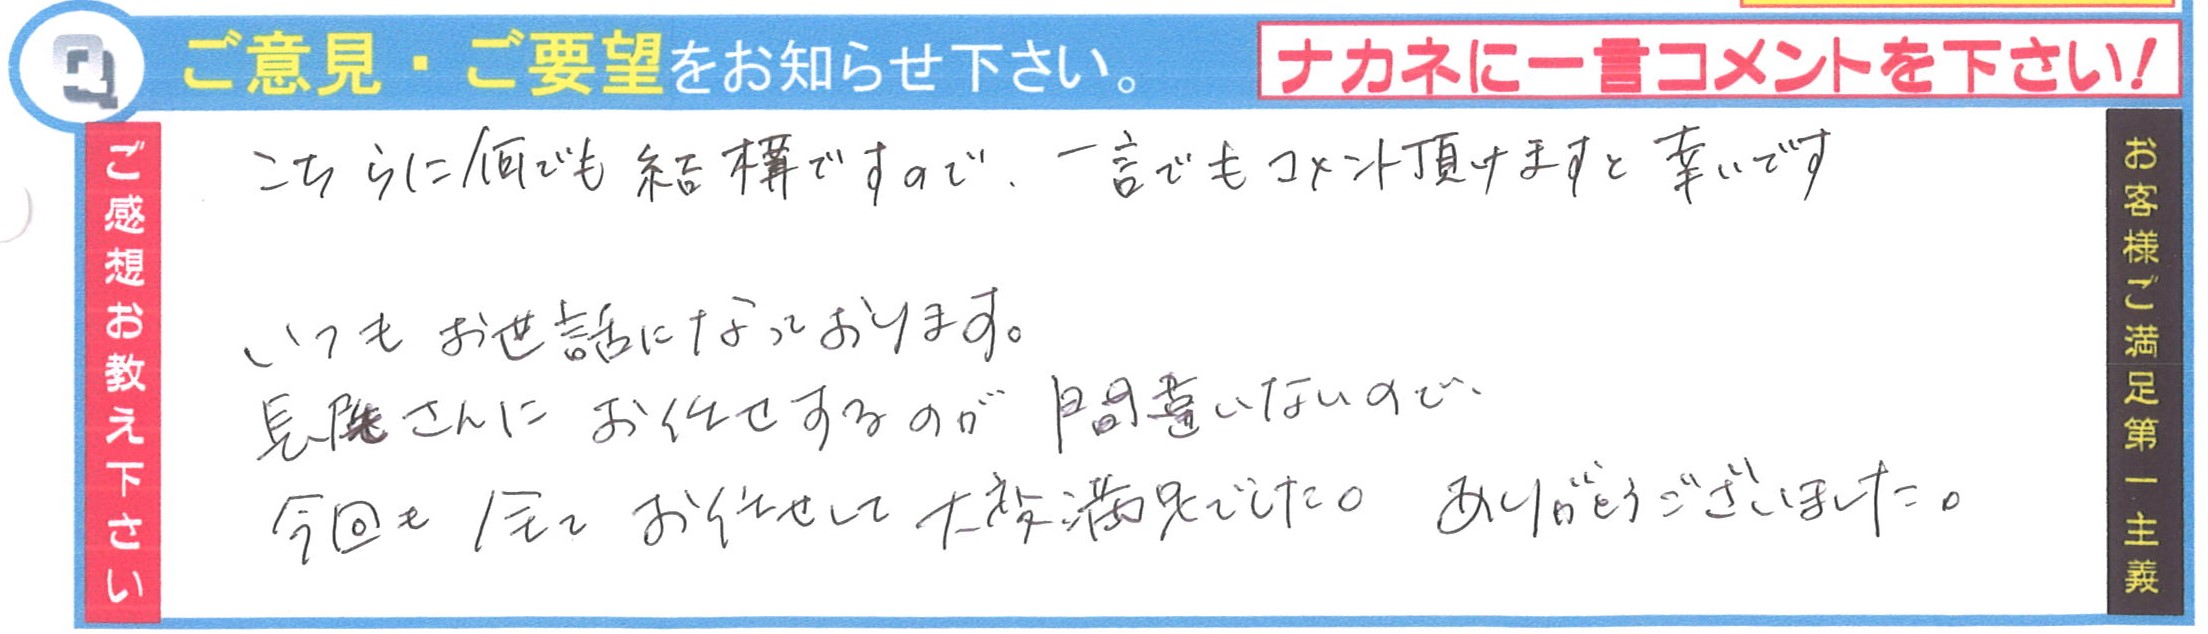 Q ご意見・ご要望をお知らせ下さい。
ナカネに一言コメントを下さい!
ご感想お教え下さい
こちらに何でも結構ですので、一言でもコメント頂けますと幸いです
いつもお世話になっております。
さんにお任せするのが間違いないので、
今回も全てお任せして大変満足でした。ありがとうございました。
お客様ご満足第一主義